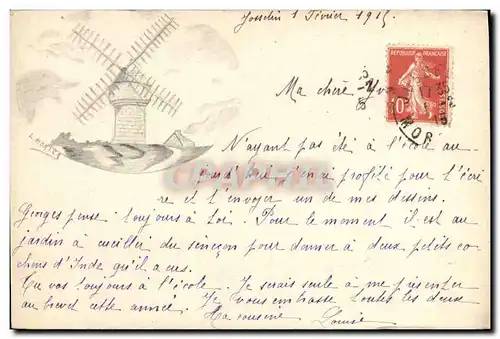 Josselin 1 Février 1915.
Ma chère Yv
REPUBLIQUE FRANÇAISE
10
POSTES
MOR
N'ayant pas été à l'école au
j'en ai profité pour t'écri
re et t'envoyer un de mes dessins.
Georges pense toujours à toi. Pour le moment il est au
jardin à cueillir du séneçon pour donner à deux petits co
chons d'Inde qu'il a eus.
Tu vas toujours à l'école. Je serais seule à me présenter
au brevet cette année. Je vous embrasse toutes les deux
Ta cousine Louise